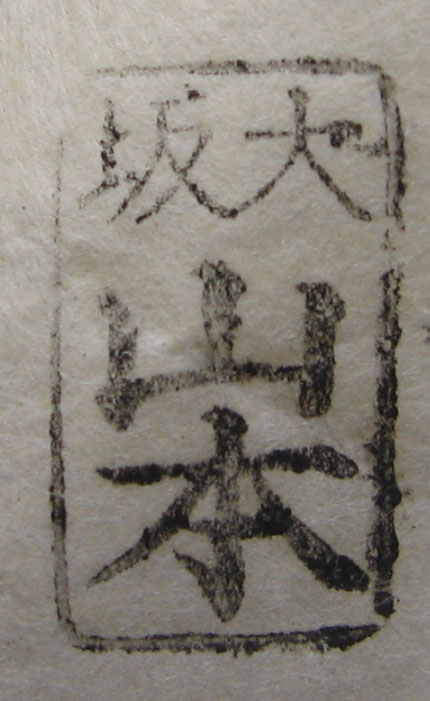 大坂
山本